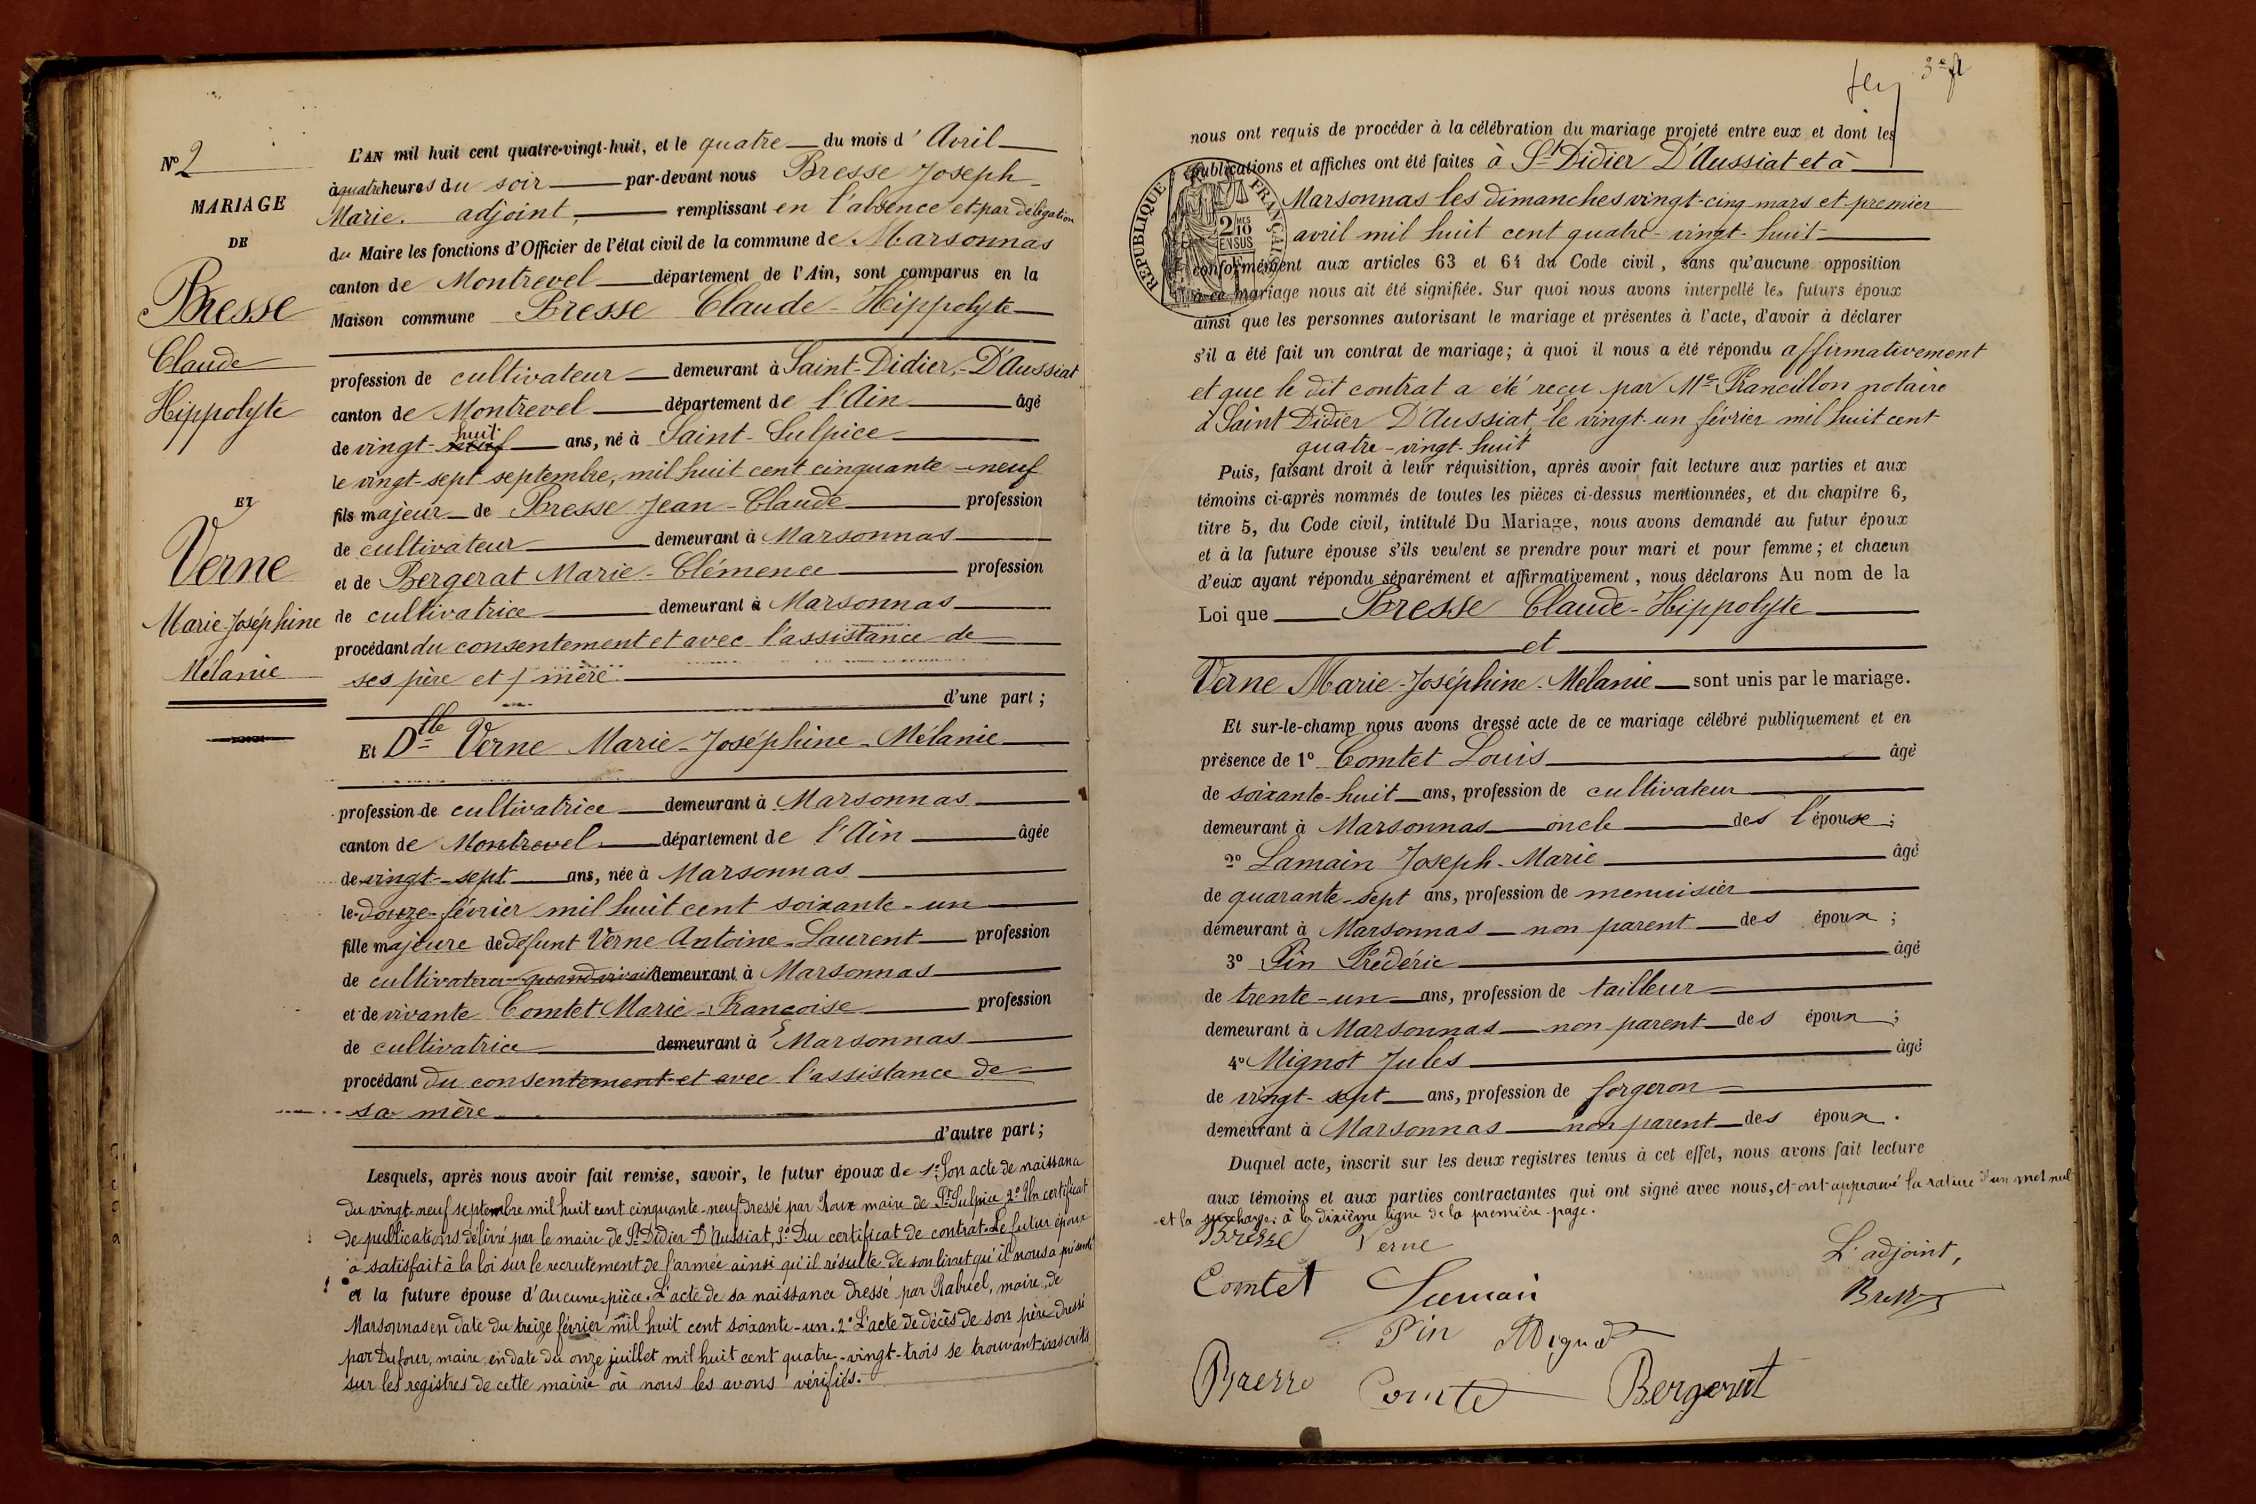 N° 2
MARIAGE
DE
Bresse
Claude
Hippolyte
ET
Verne
Marie-Joséphine
Mélanie
L'AN mil huit cent quatre-vingt-huit, et le quatre du mois d' Avril
à quatre heures du soir par-devant nous Bresse Joseph-
Marie. adjoint, remplissant en l'absence et par délégation
du Maire les fonctions d'Officier de l'état civil de la commune de Marsonnas
canton de Montrevel département de l'Ain, sont comparus en la
Maison commune Bresse Claude-Hippolyte
profession de cultivateur demeurant à Saint-Didier-D'Aussiat
canton de Montrevel département de l'Ain âgé
de vingt-neuf huit ans, né à Saint-Sulpice
le vingt-sept septembre, mil huit cent cinquante-neuf
fils majeur de Bresse Jean-Claude profession
de cultivateur demeurant à Marsonnas
et de Bergerat Marie-Clémence profession
de cultivatrice demeurant à Marsonnas
procédant du consentement et avec l'assistance de
ses père et mère
d'une part;
Et Dlle Verne Marie-Joséphine-Mélanie
profession de cultivatrice demeurant à Marsonnas
canton de Montrevel département de l'Ain âgée
de vingt-sept ans, née à Marsonnas
le douze février mil huit cent soixante-un
fille majeure de défunt Verne Antoine-Laurent profession
de cultivateur quand vivait demeurant à Marsonnas
et de vivante Comtet Marie-Françoise profession
de cultivatrice demeurant à Marsonnas
procédant du consentement et avec l'assistance de
sa mère
d'autre part;
Lesquels, après nous avoir fait remise, savoir, le futur époux de 1° Son acte de naissance
du vingt-neuf septembre mil huit cent cinquante-neuf dressé par Roux maire de St Sulpice 2° Un certificat
de publications délivré par le maire de St Didier D'Aussiat, 3° Du certificat de contrat. Le futur époux
a satisfait à la loi sur le recrutement de l'armée ainsi qu'il résulte de son livret qu'il nous a présenté
et la future épouse d'aucune pièce. L'acte de sa naissance dressé par Rabuel, maire, de
Marsonnas en date du treize février mil huit cent soixante-un. 2° L'acte de décès de son père dressé
par Dufour, maire, en date du onze juillet mil huit cent quatre-vingt-trois se trouvant inscrits
sur les registres de cette mairie où nous les avons vérifiés.
3e
nous ont requis de procéder à la célébration du mariage projeté entre eux et dont les
publications et affiches ont été faites à St Didier D'Aussiat et à
Marsonnas les dimanches vingt-cinq mars et premier
avril mil huit cent quatre-vingt-huit
conformément aux articles 63 et 64 du Code civil, sans qu'aucune opposition
à ce mariage nous ait été signifiée. Sur quoi nous avons interpellé les futurs époux
ainsi que les personnes autorisant le mariage et présentes à l'acte, d'avoir à déclarer
s'il a été fait un contrat de mariage; à quoi il nous a été répondu affirmativement
et que le dit contrat a été reçu par Me Francillon notaire
à Saint Didier D'Aussiat, le vingt-un février mil huit cent
quatre-vingt-huit
Puis, faisant droit à leur réquisition, après avoir fait lecture aux parties et aux
témoins ci-après nommés de toutes les pièces ci-dessus mentionnées, et du chapitre 6,
titre 5, du Code civil, intitulé Du Mariage, nous avons demandé au futur époux
et à la future épouse s'ils veulent se prendre pour mari et pour femme; et chacun
d'eux ayant répondu séparément et affirmativement, nous déclarons Au nom de la
Loi que Bresse Claude-Hippolyte
et
Verne Marie-Joséphine-Mélanie sont unis par le mariage.
Et sur-le-champ nous avons dressé acte de ce mariage célébré publiquement et en
présence de 1° Comtet Louis âgé
de soixante-huit ans, profession de cultivateur
demeurant à Marsonnas oncle des l'épouse;
2° Lamain Joseph-Marie âgé
de quarante-sept ans, profession de menuisier
demeurant à Marsonnas non parent des époux;
3° Pin Frédéric âgé
de trente-un ans, profession de tailleur
demeurant à Marsonnas non parent des époux;
4° Mignot Jules âgé
de vingt-sept ans, profession de forgeron
demeurant à Marsonnas non parent des époux.
Duquel acte, inscrit sur les deux registres tenus à cet effet, nous avons fait lecture
aux témoins et aux parties contractantes qui ont signé avec nous, et ont approuvé la rature d'un mot nul
et la surcharge à la dixième ligne de la première page.
Bresse Verne
L'adjoint,
Comtet Lamain Bresse
Pin Mignot
Bresse Comtet Bergerat
RÉPUBLIQUE FRANÇAISE
2 10MES
EN SUS